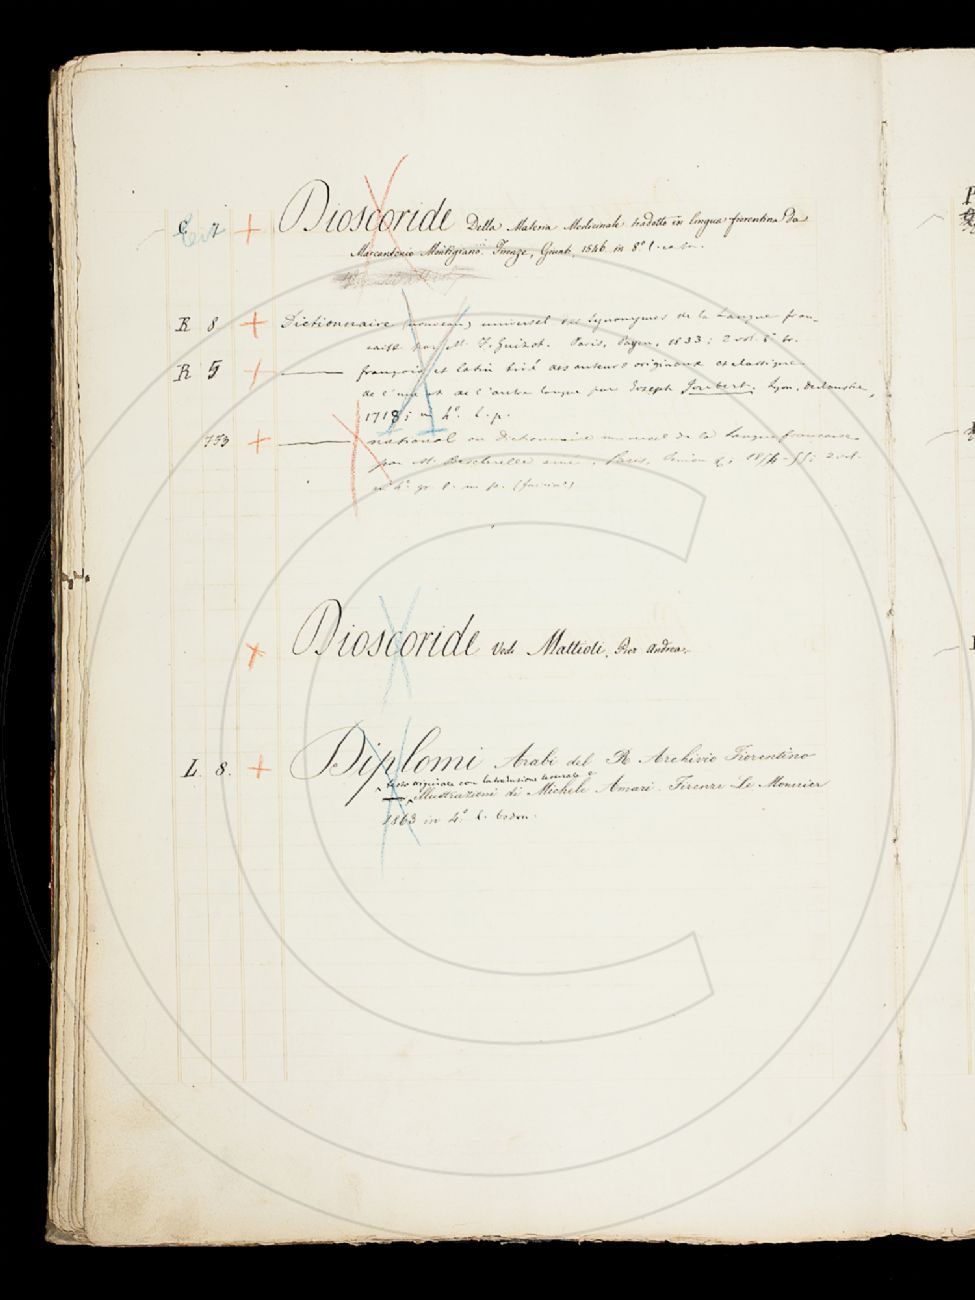 7 Dioscoride Della Materia Medicinale tradotto in lingua fiorentina da
Marcantonio Montigiano. Firenze, Giunti, 1546 in 8º
R 8 Dictionnaire (nouveau) universel des synonymes de la langue fran-
çaise par M. F. Guizot. Paris, Payen, 1833; 2 vol. 8º
R 5 —— françois et latin tiré des auteurs originaux et classiques
de l'une et de l'autre langue par Joseph Joubert. Lyon,
1718; in 4º. l. p.
733 —— national ou Dictionnaire universel de la langue française
par M. Bescherelle ainé. Paris, 1854-55; 2 vol.
in 4º gr.
Dioscoride Vedi Mattioli, Pier Andrea.
L. 8. Diplomi Arabi del R. Archivio Fiorentino
testo originale con la traduzione letterale e
illustrazioni di Michele Amari. Firenze Le Monnier
1863 in 4º